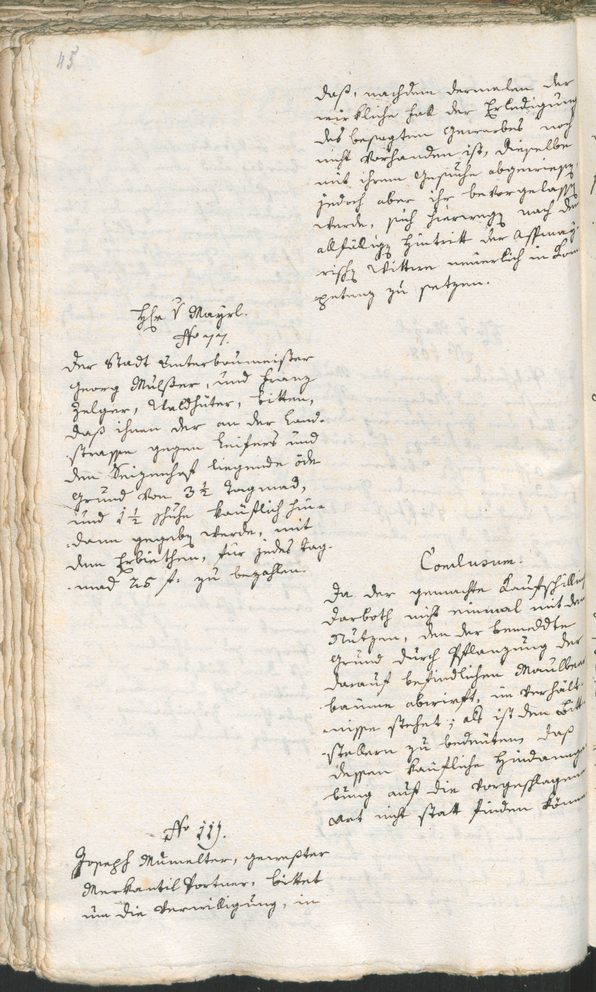 45
daß, nachdem dermalen der
wirkliche Fall der Erledigung
des besagten Gewerbes noch
nicht vorhanden ist, dieselbe
mit ihrem Gesuche abgewiesen,
jedoch aber ihr bevorgelassen
werde, sich hierwegen nach dem
allfälligen Hintritt der
rischen Wittwe neuerlich in Kom
petenz zu setzen.
Hr. v Mayrl.
No 77.
Der Stadt Unterbaumeister
Georg Mülster, und Franz
Zelger, Waldhüter, bitten,
daß ihnen der an der Land-
strasse gegen Leifers und
dem Seizenhof liegende öde
Grund von 3½ Tagmad,
und 1½ Schuhe käuflich hin-
dann gegeben werde, mit
dem Erbiethen, für jedes Tag-
mad 25 f. zu bezahlen.
Conclusum.
Da der gemachte Kaufschilling
Darboth nicht einmal mit dem
Nutzen, den der bemeldte
Grund durch Pflanzung der
darauf befindlichen Maulbeer
bäume abwirft, im Verhält-
nisse stehet; als ist den Bitt-
stellern zu bedeuten, daß
dessen käufliche Hindannge
bung auf die vorgeschlagene
Art nicht statt finden könne
No 119.
Joseph Mumelter, gewester
Merkantil Portner, bittet
um die Verwilligung, in